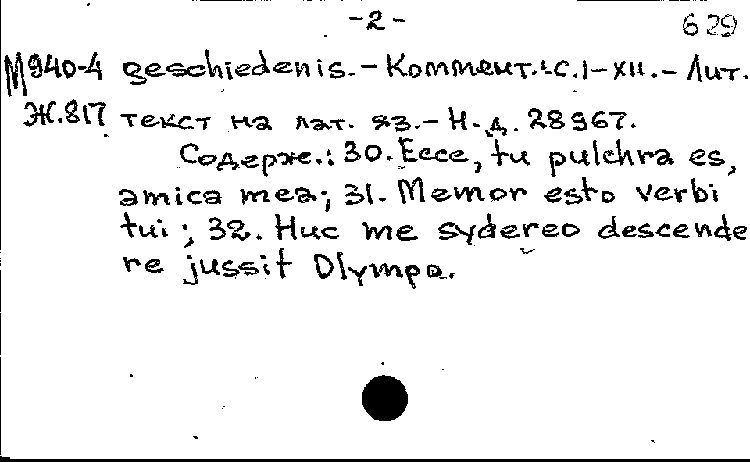 -2- 629
М940-4 geschiedenis.-Коммент.:С.I-XII.-Лит.
Ж.817 текст на лат. яз.-Н.д. 28967.
Содерж.: 30. Ecce, tu pulchra es,
amica mea; 31. Memor esto verbi
tui; 32. Huc me sydereo descende
re jussit Olympo.